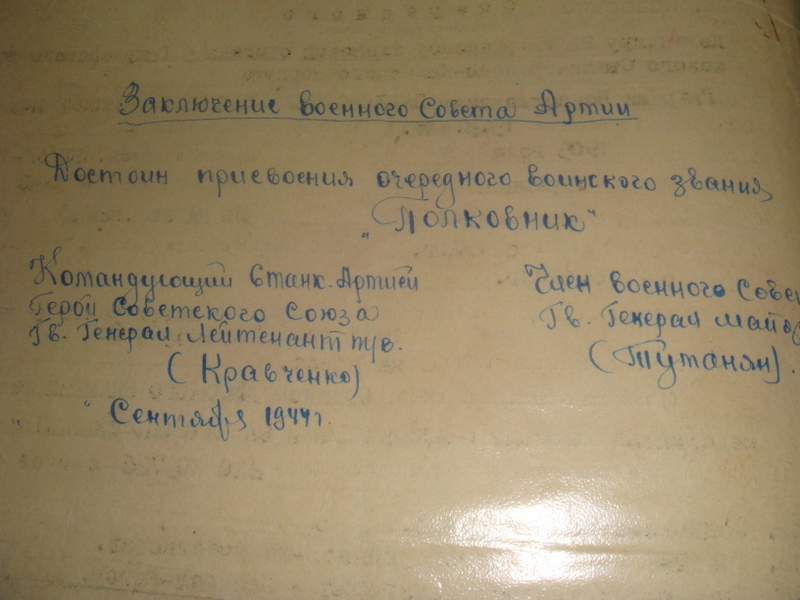 Заключение военного Совета Артии
Достоин присвоения очередного воинского звания
„Полковник“
Командующий 6 танк. Артией
Герой Советского Союза
Гв. Генерал Лейтенант т/в.
(Кравченко)
" " Сентября 1944 г.
Член военного Совет
Гв. Генерал майор
(Туманян).